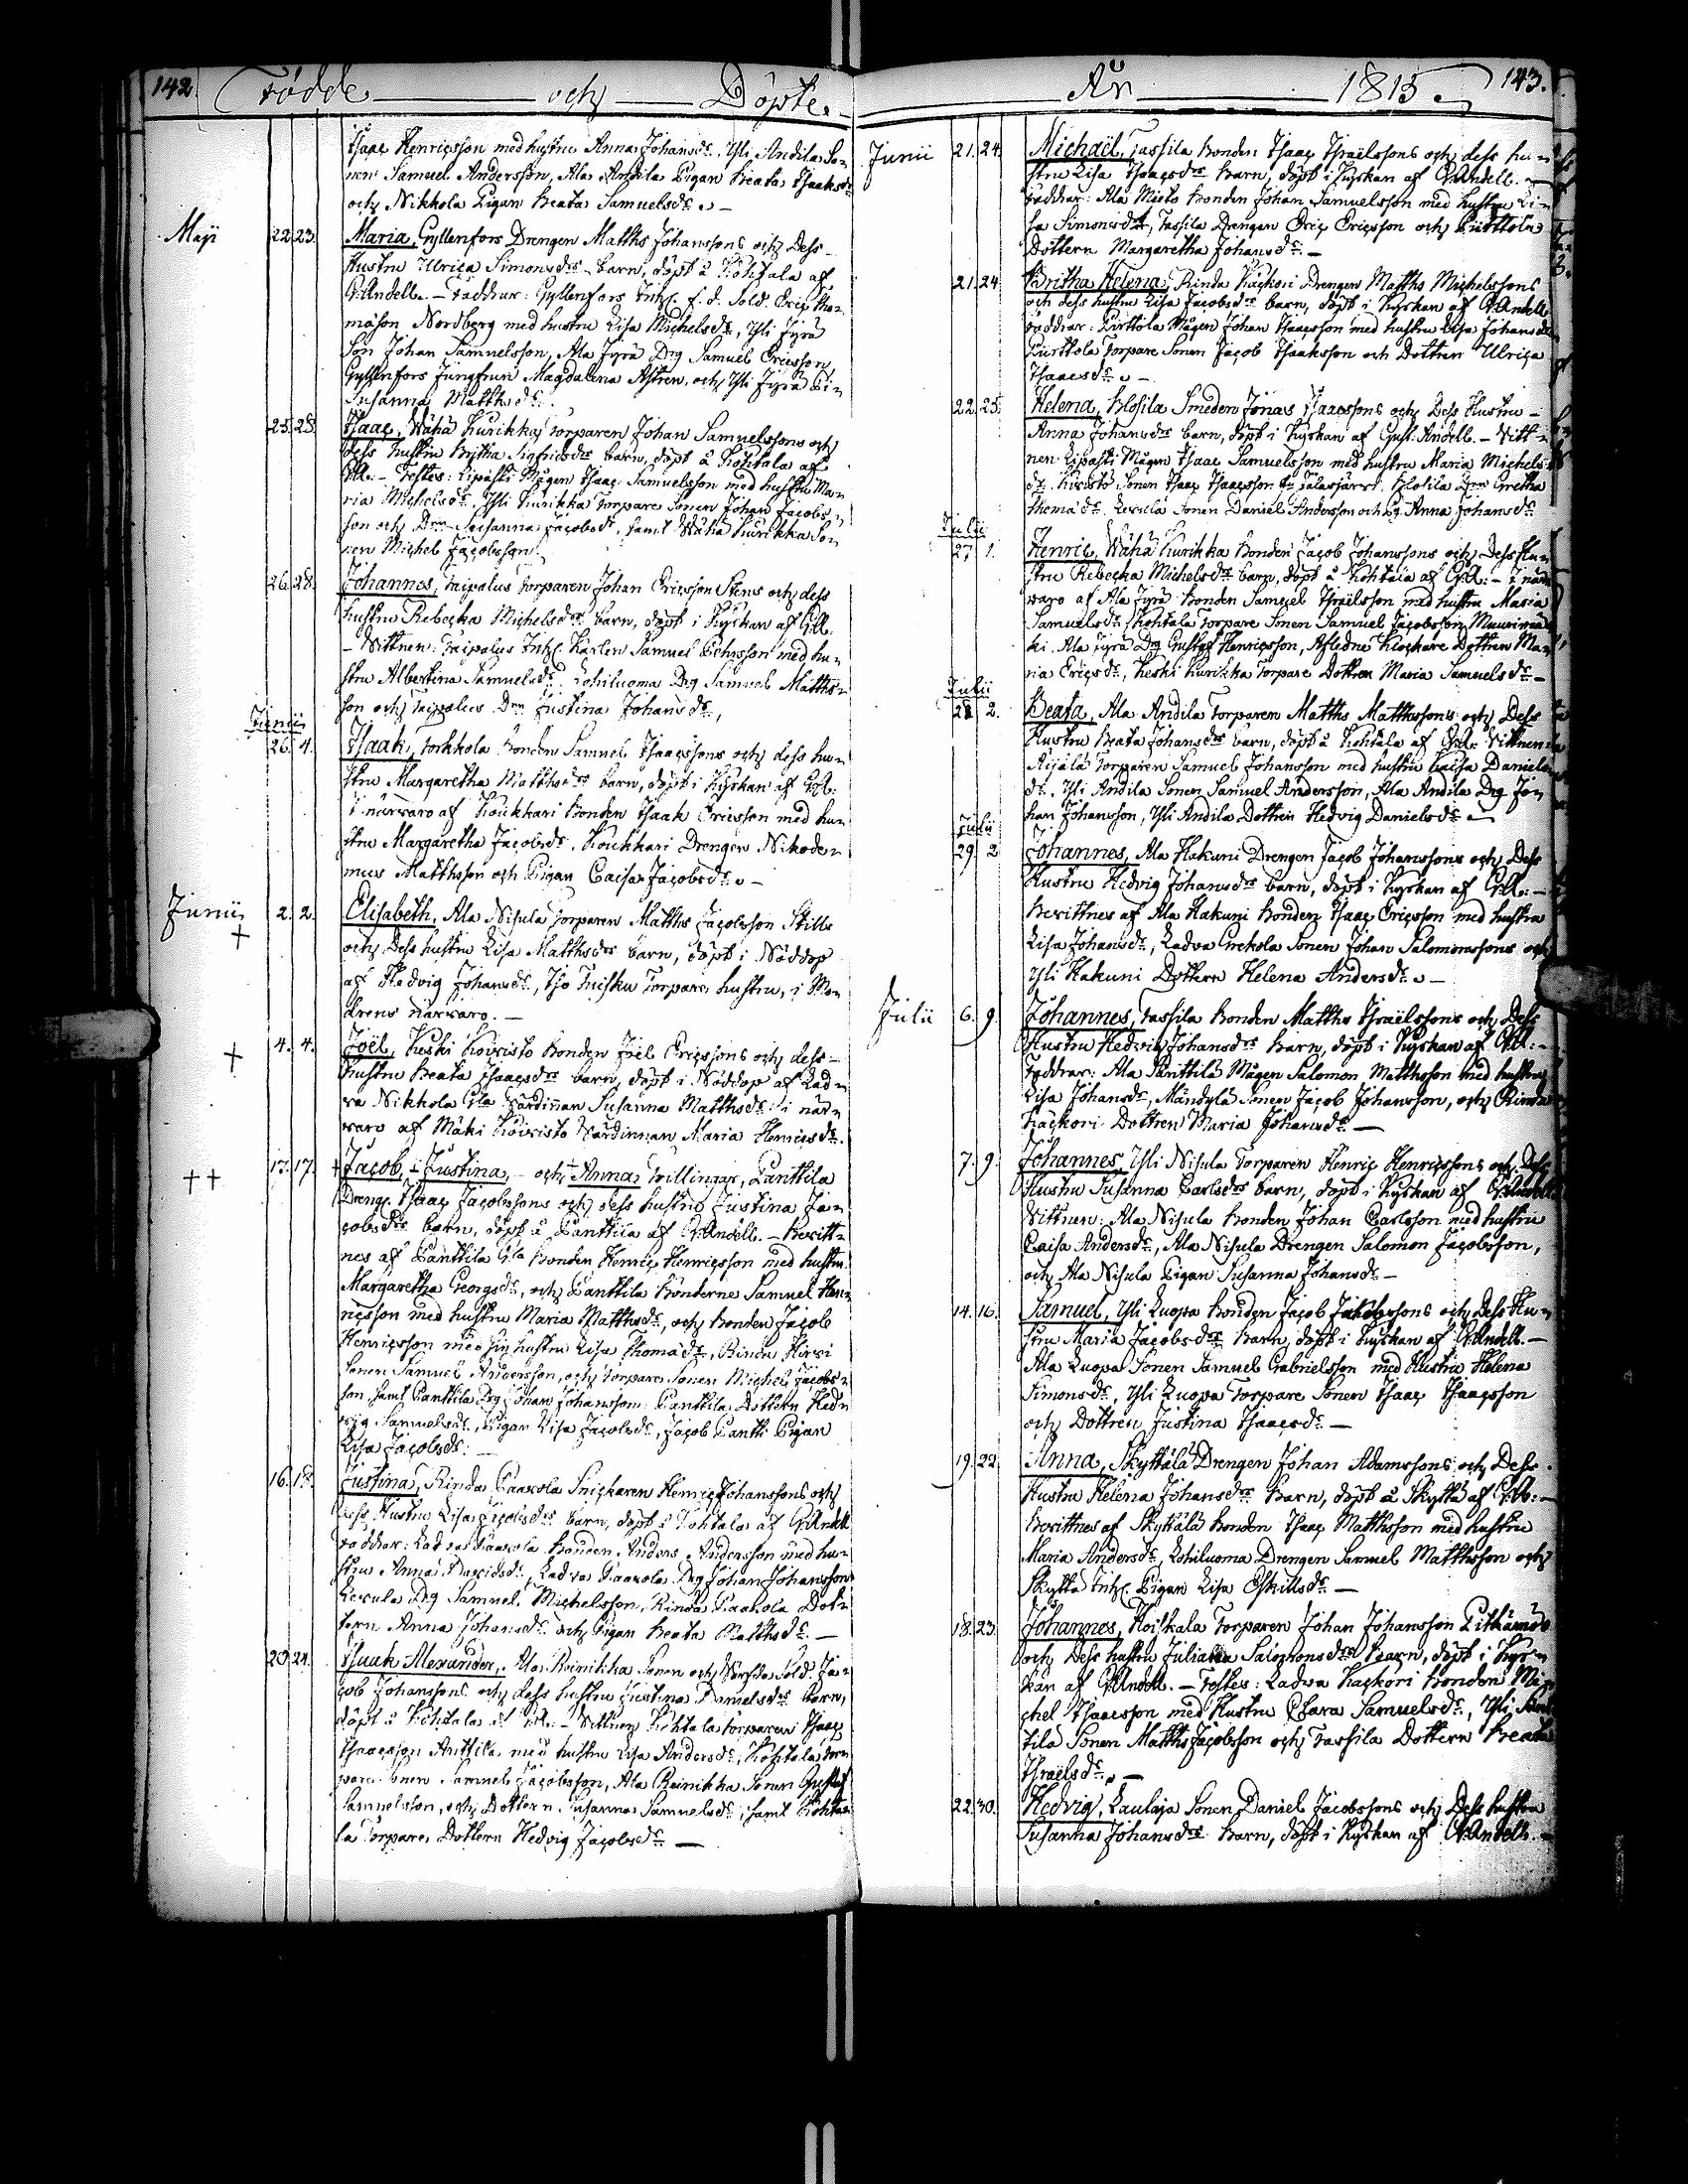 142
Födde och Döpte
Isaac Henricsson med hustru Anna Johansdr. Yli Andila So-
nen Samuel Andersson, Ala Andila Pigan Beata Isaaksdr
och Nikkola Pigan Beata Samuelsdr. -
Maji 22. 23. Maria, Gyllenfors Drengen Matths Johanssons och Dess
Hustru Ulrica Simonsdrs barn, döpt å Kohtala af
G:Andell. - Faddrar: Gyllenfors Inh. f. d. Sold. Eric Tho-
mason Nordberg med hustru Lisa Michelsdr, Yli Jyrä
Son Johan Samuelsson, Ala Jyrä Drg Samuel Ericsson,
Gyllenfors Jungfrun Magdalena Astren, och Yli Jyrä Pi-
Susanna Matthsdr.
25. 28. Isaac, Wähä Kurikka Torparen Johan Samuelssons och
dess hustru Britha Sigfridsdrs barn, döpt å Kohtala af
G:A. - Testes: Lipasti Mågen Isaac Samuelsson med hustru Ma-
ria Michelsdr, Yli Kurikka Torpare Sonen Johan Jacobs-
son och Drn Susanna Jacobsdr, samt Wähä Kurikka So-
nen Michel Jacobsson.
26. 28. Johannes, Taipalus Torparen Johan Ericsson Stens och dess
hustru Rebecka Michelsdrs barn, döpt i Kyrkan af G:A.
- Vittnen: Taipalus Inh. Karlen Samuel med hu-
stru Albertina Samuelsdr. Lohiluoma Drg Samuel Matths-
son och Taipalus Drn Justina Johansdr,
Junii
26. 4. Isaak, Torkkola Bonden Samuel Isaacssons och dess hu-
stru Margaretha Matthsdrs barn, döpt i Kyrkan af G:A.
i närvaro af Koukkari Bonden Isaak Ericsson med hu-
stru Margaretha Jacobsdr. Koukkari Drengen Nikode-
mus Matthsson och Pigan Caisa Jacobsdr. -
Junii 2. 2. Elisabeth, Ala Nisula Torparen Matths Jacobsson Stills
+
och Dess hustru Lisa Matthsdrs barn, döpt i Nöddop
af Hedvig Johansdr, Iso Tuisku Torpare hustru, i Mo-
drens närvaro. -
+ 4. 4. Joël, Keski Koivisto Bonden Joël Ericssons och dess
hustru Beata Isaacsdrs barn, döpt i Nöddop af Lad-
va Nikkola Gla Värdinnan Susanna Matthsdr. i när-
varo af Mäki Koivisto Värdinnan Maria Henricsdr.
++ 17. 17. + Jacob, + Justina, - och + Anna, Trillingar, Panttila
Dreng. Isaac Jacobssons och dess hustru Justina Ja-
cobsdrs barn, döpt å Panttila af G:Andell. - Bevitt-
nes af Panttila Gla Bonden Henric Henricsson med hustru
Margaretha Georgsdr, och Panttila Bönderne Samuel Hen-
ricsson med hustru Maria Matthsdr, och Bonden Jacob
Henricsson med sin hustru Lisa Thomasdr, Rinda Hirvi
Sonen Samuel Andersson, och Torpare Sonen Michel Jacobs-
son samt Panttila Drg Johan Johansson. Panttila Dottern Hed-
vig Samuelsdr, Pigan Lisa Jacobsdr, Jacob Pantti Pigan
Lisa Jacobsdr. -
16. 18. Justina, Rinda Paavola Snickaren Henric Johanssons och
dess Hustru Lisa Jacobsdrs barn, döpt å Kohtala af G:Andell
Faddrar: Ladva Paavola Bonden Anders Andersson med hu-
stru Anna Davidsdr, Ladva Paavola Drg Johan Johansson
Levula Drg Samuel Michelsson, Rinda Paavola Dot-
tern Anna Johansdr och Pigan Beata Matthsdr. -
20. 24. Isaak Alexander, Ala Reinikka Sonen och Värfda Sold. Ja-
cob Johanssons och dess hustru Justina Danielsdrs barn,
döpt å Kohtala af G:A. - Vittnen Kohtala Torparen Isaac
Isaacsson Anttila med hustru Lisa Andersdr, Kohtala Tor-
pare Sonen Samuel Jacobsson, Ala Reinikka Sonen Gustaf
Samuelsson, och Dottern Susanna Samuelsdr, samt Kohta-
la Torpare Dottern Hedvig Jacobsdr -
År 1815 143.
Junii 21. 24. Michaël, Tassila Bonden Isaac Israëlssons och dess hu-
stru Lisa Isaacsdrs barn, döpt i Kyrkan af G:Andell. -
Faddrar: Ala Mieto Bonden Johan Samuelsson med hustru Li-
sa Simonsdr, Tassila Drengen Eric Ericsson och Kurttola
Dottern Margaretha Johansdr. -
21. 24. Britha Helena, Rinda Käckori Drengen Matths Michelssons
och dess hustru Lisa Jacobsdrs barn, döpt i Kyrkan af G:Andell
Faddrar: Kurttola Mågen Johan Isaacsson med hustru Lisa Johansdr
Kurttola Torpare Sonen Jacob Isaaksson och Dottren Ulrica
Isaacsdr. -
22. 25. Helena, Klosila Smeden Jonas Isaacssons och Dess Hustru
Anna Johansdrs barn, döpt i Kyrkan af Gust. Andell. - Vitt-
nen Lipasti Mågen Isaac Samuelsson med hustru Maria Michels-
dr. Koivisto Sonen Isaac Isaacsson fr. Jalasjärvi. Klosila Drn Gretha
Thomasdr. Levula Sonen Daniel Andersson och Pig. Anna Johansdr
Julii
27. 1. Henric, Wähä Kurikka Bonden Jacob Johanssons och Dess Hu-
stru Rebecka Michelsdrs barn, döpt å Kohtala af G:A. - I när-
varo af Ala Jyrä Bonden Samuel Israëlsson med hustru Maria
Samuelsdr, Kohtala Torpare Sonen Samuel Jacobsson Muurimä-
ki. Ala Jyrä Drg Gustaf Henricsson, Aflidne Klockare Dottren Ma-
ria Ericsdr, Keski Kurikka Torpare Dottren Maria Samuelsdr -
Julii
28. 2. Beata, Ala Andila Torparen Matths Matthssons och Dess
Hustru Beata Johansdrs barn, döpt å Kohtala af G:A. Vittnen
Äijälä Torparen Samuel Johansson med hustru Caisa Daniels-
dr. Yli Andila Sonen Samuel Andersson, Ala Andila Drg Jo-
han Johansson, Yli Andila Dottren Hedvig Danielsdr -
Julii
29. 2. Johannes, Ala Hakuni Drengen Jacob Johanssons och Dess
Hustru Hedvig Johansdrs barn, döpt i Kyrkan af G:A. -
Bevittnes af Ala Hakuni Bonden Isaac Ericsson med hustru
Lisa Johansdr, Ladva Grekola Sonen Johan Salomonssons och
Yli Hakuni Dottern Helena Andersdr. -
Julii 6. 9. Johannes, Tassila Bonden Matths Israëlssons och Dess
Hustru Hedvig Johansdrs Barn, döpt i Kyrkan af G:A. -
Faddrar: Ala Skrittilä Mågen Salomon Matthsson med hustru
Lisa Johansdr, Mändylä Sonen Jacob Johansson, och Rinda
Käckori Dottren Maria Johansdr -
7. 9. Johannes, Yli Nisula Torparen Henric Henricssons och Dess
Hustru Susanna Carlsdrs barn, döpt i Kyrkan af G:Andell
Vittnen: Ala Nisula Bonden Johan Carlsson med hustru
Caisa Andersdr, Ala Nisula Drengen Salomon Jacobsson,
och Ala Nisula Pigan Susanna Johansdr -
14. 16. Samuel, Yli Luopa Bonden Jacob Jakobssons och Dess Hu-
stru Maria Jacobsdrs Barn, döpt i Kyrkan af G:Andell. -
Ala Luopa Sonen Samuel Gabrielsson med Hustru Helena
Simonsdr, Yli Luopa Torpare Sonen Isaac Isaacsson
och Dottren Justina Isaacsdr -
19. 22. Anna, Skyttälä Drengen Johan Adamssons och Dess
Hustru Helena Johansdrs Barn, döpt å Skyttä af G:A. -
Bevittnes af Skyttälä Bonden Isaac Matthsson med hustru
Maria Andersdr, Lohiluoma Drengen Samuel Matthsson och
Skyttä Inh. Pigan Lisa Eskillsdr -
18. 23. Johannes, Koiskala Torparen Johan Johansson Pitkämö
och Dess hustru Juliana Salomonsdrs barn, döpt i Kyr-
kan af G:Andell. - Testes: Ladva Käckori Bonden Mi-
chel Isaacsson med Hustru Clara Samuelsdr, Yli
tila Sonen Matths Jacobsson och Tassila Dottern Beata
Israëlsdr. -
22. 30. Hedvig, Laulaja Sonen Daniel Jacobssons och Dess hustru
Susanna Johansdrs Barn, döpt i Kyrkan af G:Andell. -